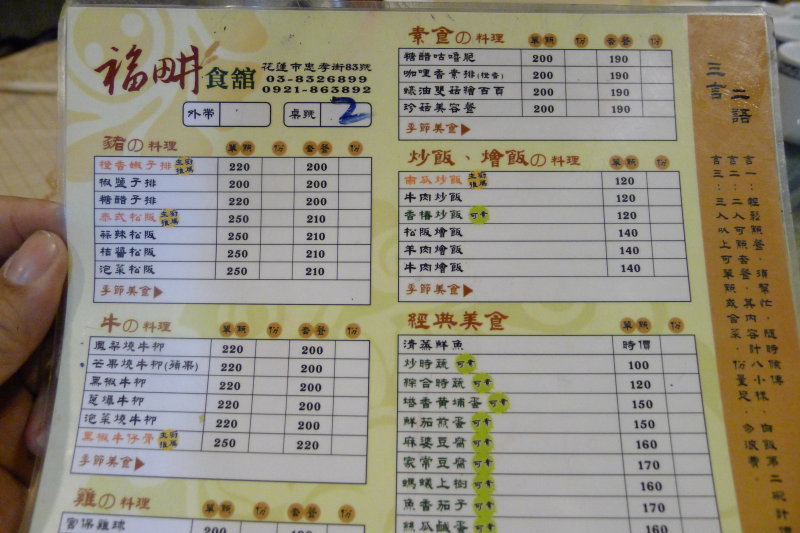 福町食館
花蓮市忠孝街83號
03-8326899
0921-863892
外帶
桌號 2
豬の料理 單點 份 套餐 份
橙香嫩子排 主廚推薦 220 200
椒鹽子排 200 200
糖醋子排 200 200
泰式松阪 主廚推薦 250 210
蒜辣松阪 250 210
桔醬松阪 250 210
泡菜松阪 250 210
季節美食▶
牛の料理 單點 份 套餐 份
鳳梨燒牛柳 220 200
芒果燒牛柳(蘋果) 220 200
黑椒牛柳 220 200
蔥爆牛柳 220 200
泡菜燒牛柳 220 200
黑椒牛仔骨 主廚推薦 250 220
季節美食▶
雞の料理 單點 份 套餐 份
宮保雞球 200 180
素食の料理 單點 份 套餐 份
糖醋咕嘻肥 200 190
咖哩香素排(橙香) 200 190
蠔油雙菇燴百頁 200 190
珍菇美容餐 200 190
季節美食▶
炒飯、燴飯の料理 單點 份
南瓜炒飯 主廚推薦 120
牛肉炒飯 120
香椿炒飯 可素 120
松阪燴飯 140
羊肉燴飯 140
牛肉燴飯 140
季節美食▶
經典美食 單點 份
清蒸鮮魚 時價
炒時蔬 可素 100
綜合時蔬 可素 120
塔香黃埔蛋 可素 150
鮮茄煎蛋 可素 150
麻婆豆腐 可素 160
家常豆腐 可素 170
螞蟻上樹 可素 160
魚香茄子 可素 170
絲瓜鹹蛋 可素 160
三言二語
言一:輕鬆點餐,須幫忙,隨時候傳
言二:二人可點套餐,其內容計八小樣,白飯第二碗計價
言三:三人以上可單點或合菜,份量足,勿浪費。